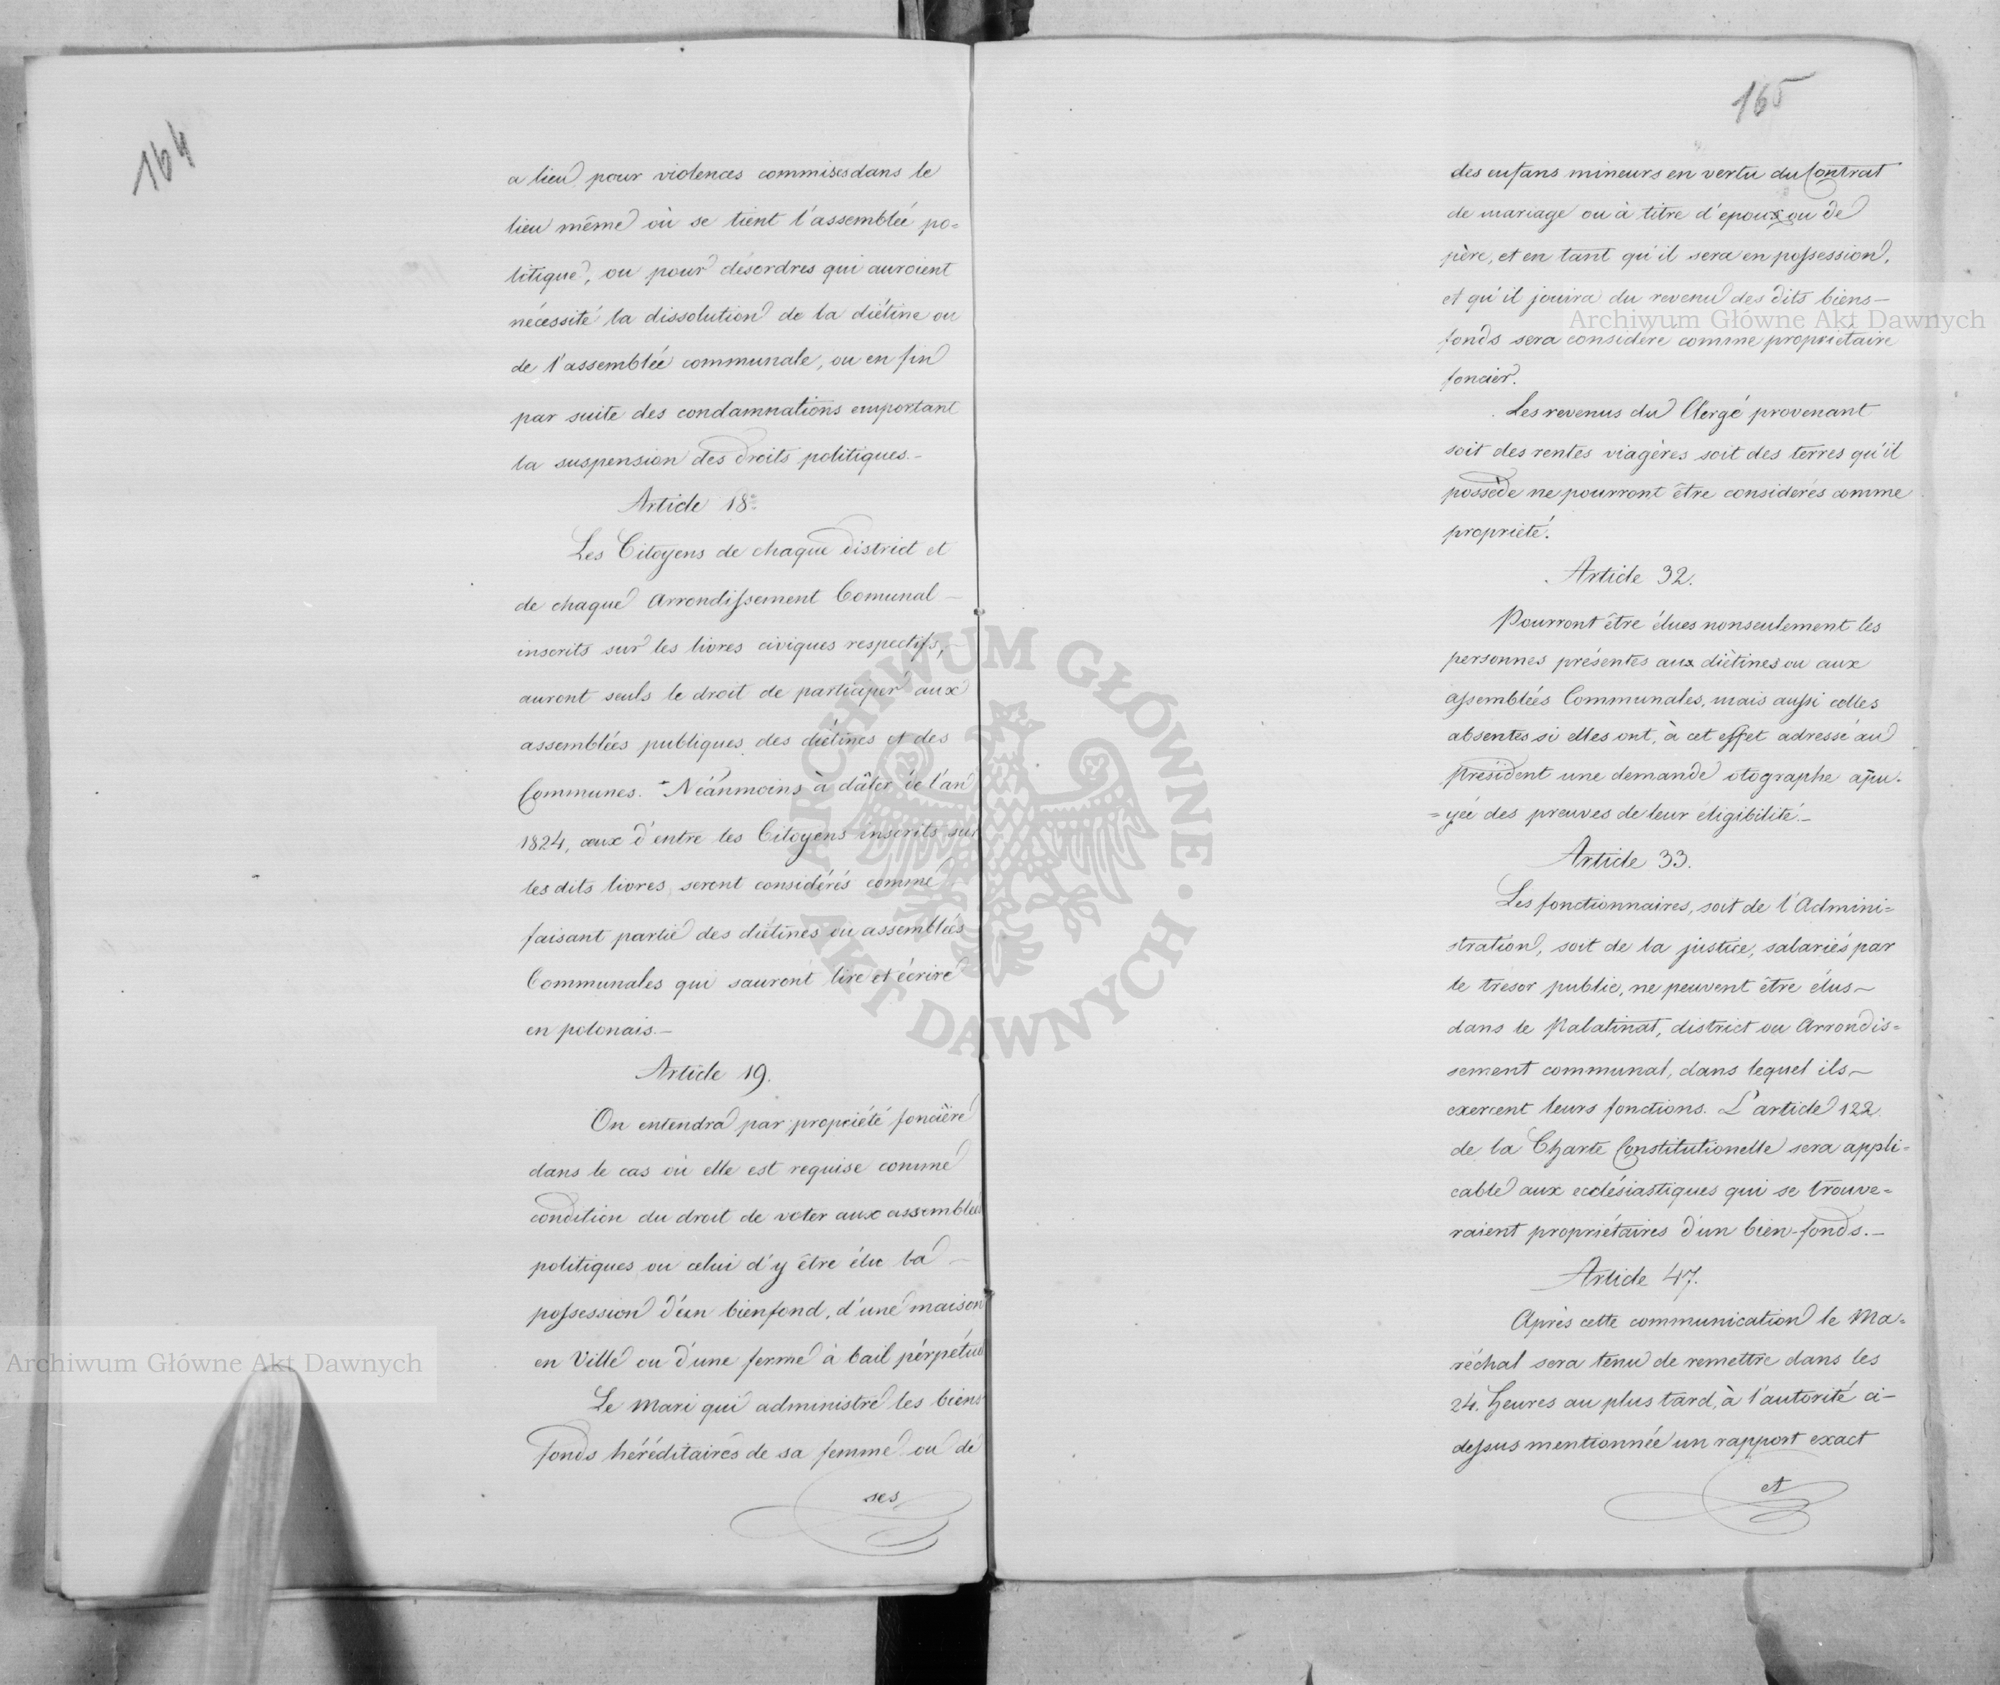 164
a lieu pour violences commises dans le
lieu même où se tient l'assemblée po=
litique, ou pour désordres qui auroient
nécessité la dissolution de la diétine ou
de l'assemblée communale, ou en fin
par suite des condamnations emportant
la suspension des droits politiques.-
Article 18.
Les Citoyens de chaque district et
de chaque Arrondissement Comunal -
inscrits sur les livres civiques respectifs,
auront seuls le droit de participer aux
assemblées publiques des diétines et des
Communes. - Néanmoins à dâter de l'an
1824, ceux d'entre les Citoyens inscrits sur
les dits livres, seront considérés comme
faisant partie des diétines ou assemblées
Communales qui sauront lire et écrire
en polonais.-
Article 19.
On entendra par propriété foncière
dans le cas où elle est requise comme
condition du droit de voter aux assemblées
politiques ou celui d'y être élu la -
possession d'un bienfond, d'une maison
en Ville ou d'une ferme à bail pérpétuel
Le Mari qui administre les biens
fonds héréditaires de sa femme ou de
ses
165
des enfans mineurs en vertu du Contrat
de mariage ou à titre d'epoux ou de
père, et en tant qu'il sera en possession,
et qu'il jouira du revenu des dits biens-
fonds sera considéré comme propriétaire
foncier.
Les revenus du Clergé provenant
soit des rentes viagères soit des terres qu'il
possède ne pourront être considerés comme
propriété.
Article 32.
Pourront être élues nonseulement les
personnes présentes aux diètines ou aux
assemblées Communales, mais aussi celles
absentes si elles ont, à cet effet adressé au
président une demande otographe apu.
=yée des preuves de leur éligibilité.-
Article 33.
Les fonctionnaires, soit de l'Admini=
stration, soit de la justice, salariés par
le trésor public, ne peuvent être élus-
dans le Palatinat, district ou Arrondis=
sement communal, dans lequel ils-
exercent leurs fonctions. L'article 122
de la Charte Constitutionelle sera appli=
cable aux ecclésiastiques qui se trouve=
raient propriétaires d'un bien-fonds.-
Article 47.
Après cette communication le Ma=
réchal sera tenu de remettre dans les
24. heures au plus tard, à l'autorité ci-
dessus mentionnée un rapport exact
et
Archiwum Główne Akt Dawnych
Archiwum Główne Akt Dawnych
ARCHIWUM GŁÓWNE · AKT DAWNYCH ·